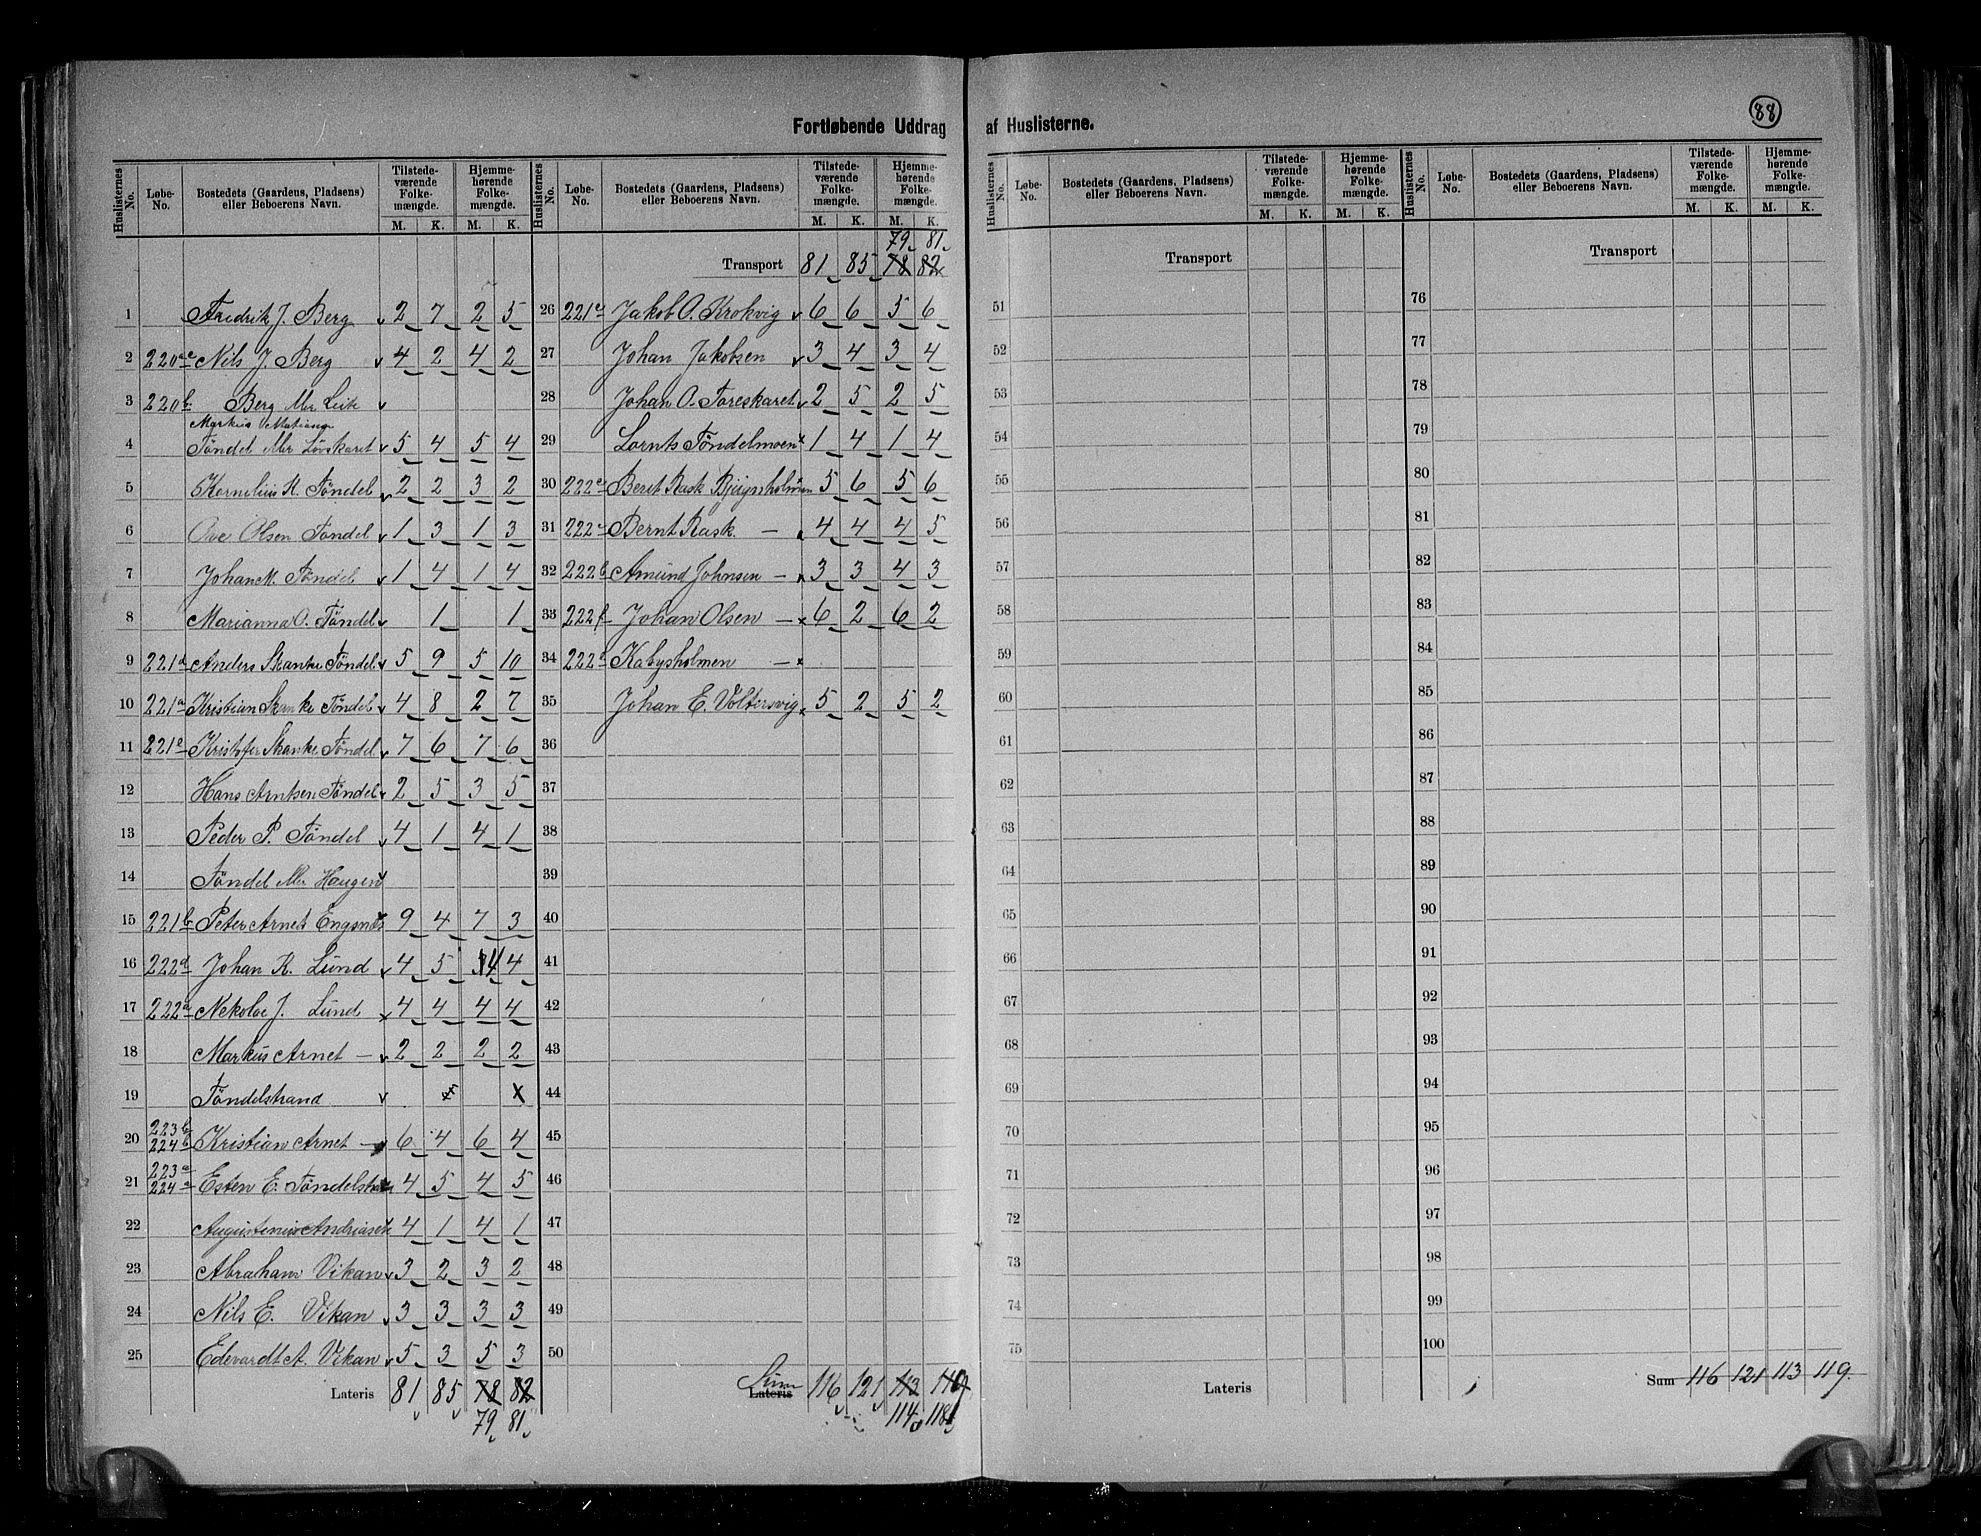 Fortløbende Uddrag af Huslisterne.
88
Huslisternes No. Løbe-No. Bostedets (Gaardens, Pladsens) eller Beboerens Navn. Tilstedeværende Folkemængde. M. K. Hjemmehørende Folkemængde. M. K.
1 Fredrik J. Berg 2 7 2 5
2 220 Nils J. Berg 4 2 4 2
3 220b Berg
4 Tøndel Løvskaret 5 4 5 4
5 Kornelius K. Tøndel 2 2 3 2
6 Ove Olsen Tøndel 1 3 1 3
7 Johan M. Tøndel 1 4 1 4
8 Marianna O. Tøndel 1 1
9 221d Anders Skanke Tøndel 5 9 5 10
10 221a Kristian Skanke Tøndel 4 8 2 7
11 221e Kristofer Skanke Tøndel 7 6 7 6
12 Hans Arntsen Tøndel 2 5 3 5
13 Peder P. Tøndel 4 1 4 1
14 Tøndel Haugen
15 221b Peter Arnets Engsnes 9 4 7 3
16 222d Johan K. Lund 4 5 4 4
17 222a Nekolai J. Lund 4 4 4 4
18 Markus Arnet — 2 2 2 2
19 Tøndelstrand
20 223b 224b Kristian Arnet — 6 4 6 4
21 223a 224a Esten E. Tøndelstrand 4 5 4 5
22 Augustinus Andriasen 4 1 4 1
23 Abraham Vikan 3 2 3 2
24 Nils E. Vikan 3 3 3 3
25 Edevardt A. Vikan 5 3 5 3
Lateris 81 85 78 82
79 81
Huslisternes No. Løbe-No. Bostedets (Gaardens, Pladsens) eller Beboerens Navn. Tilstedeværende Folkemængde. M. K. Hjemmehørende Folkemængde. M. K.
79 81
Transport 81 85 78 82
26 221c Jakob O. Krokvig 6 6 5 6
27 Johan Jakobsen 3 4 3 4
28 Johan O. Toreskaret 2 5 2 5
29 Lornts Tøndelmoen 1 4 1 4
30 222e Berit Rask Bjeignholmen 5 6 5 6
31 222c Bernt Rask — 4 4 4 5
32 222b Amund Johnsen — 3 3 4 3
33 222f Johan Olsen — 6 2 6 2
34 222 Kabysholmen —
35 Johan E. Voltersvig 5 2 5 2
36
37
38
39
40
41
42
43
44
45
46
47
48
49
50
Sum Lateris 116 121 113 119
114 118
Huslisternes No. Løbe-No. Bostedets (Gaardens, Pladsens) eller Beboerens Navn. Tilstedeværende Folkemængde. M. K. Hjemmehørende Folkemængde. M. K.
Transport
51
52
53
54
55
56
57
58
59
60
61
62
63
64
65
66
67
68
69
70
71
72
73
74
75
Lateris
Huslisternes No. Løbe-No. Bostedets (Gaardens, Pladsens) eller Beboerens Navn. Tilstedeværende Folkemængde. M. K. Hjemmehørende Folkemængde. M. K.
Transport
76
77
78
79
80
81
82
83
84
85
86
87
88
89
90
91
92
93
94
95
96
97
98
99
100
Sum 116 121 113 119.